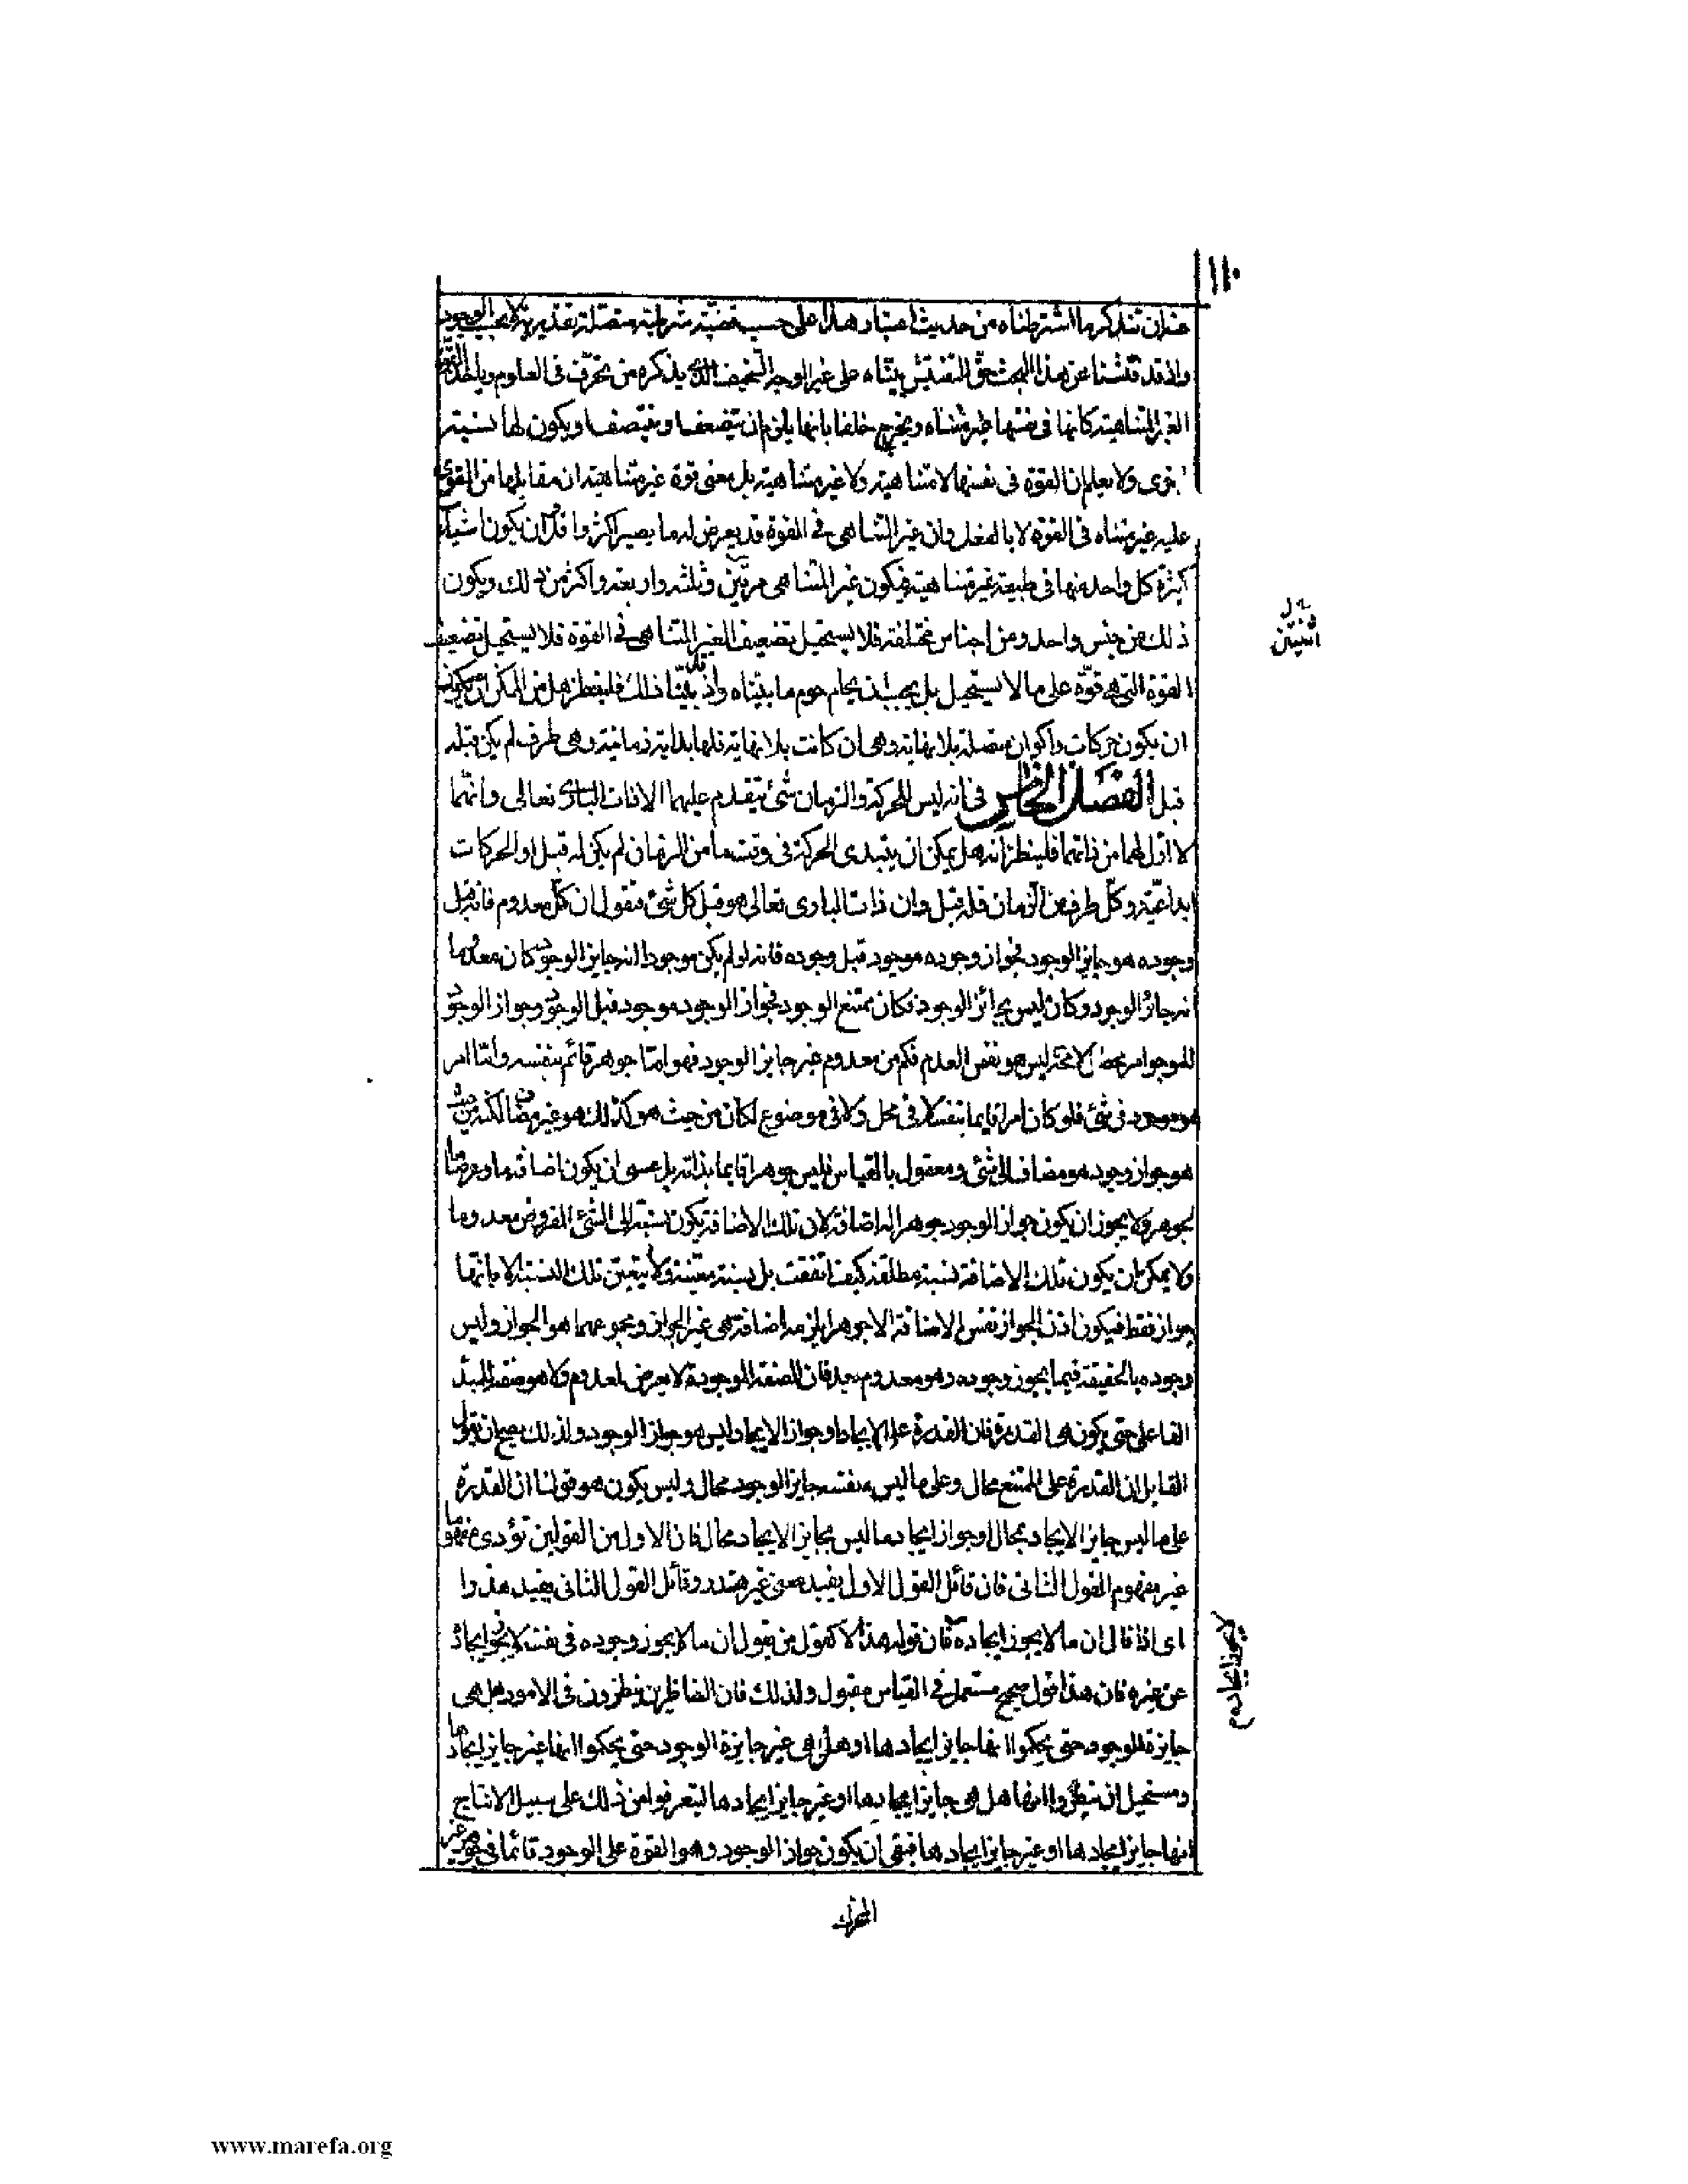 ١١٠
تتذكر ما اشترطناه من حديث اعتبار هذا على حسب قضية شرطية متصلة تقديرية لا بحسب الوجود
واذ قد فتشنا عن هذا البحث حق التفتيش بيناه على غير الوجه السخيف الذي يذكره من تحرف في العلوم وياخذ القوة
الغير المتناهية كانها في نفسها غير متناه ويخرج خلفا بانها يلزم ان تتضعف وتتنصف ويكون لها نسبة
اخرى ولا يعلم ان القوة في نفسها لا متناهية ولا غير متناهية بل معنى قوة غير متناهية ان مقابلها من المقوى
عليه غير متناه في القوة لا بالفعل وان غير المتناهي في القوة قد يعرض له ما يصير اكثر واقل ان يكون اشياء
كثيرة كل واحد منها في طبيعة غير متناهية فيكون غير المتناهي مرتين وثلثة واربعة واكثر من ذلك ويكون
ذلك من جنس واحد ومن اجناس مختلفة فلا يستحيل تضعيف الغير المتناهي في القوة فلا يستحيل تضعيف
القوة التي هي قوة على ما لا يستحيل بل يجب ان يحام حوم ما بيناه واذ قد بينا ذلك فلينظر هل من الممكن
ان يكون حركات واكوان متصلة بلا نهاية وهي ان كانت بلا نهاية فلها بداية زمانية وهي طرف لم يكن قبله
قبل الفصل الحادي عشر في انه ليس للحركة والزمان شئ يتقدم عليهما الا ذات الباري تعالى وانهما
لا اول لهما من ذاتهما فلينظر انه هل يمكن ان يبتدى الحركة في وقت ما من الزمان لم يكن له قبل او الحركات
ابداعية وكل طرف من الزمان فله قبل وان ذات البارى تعالى هو قبل كل شئ فنقول ان كل معدوم فانه قبل
وجوده هو جايز الوجود فجواز وجوده موجود قبل وجوده فانه لو لم يكن موجودا انه جايز الوجود كان معدوما
انه جائز الوجود وكان ليس بجائز الوجود فكان ممتنع الوجود فجواز الوجود موجود قبل الوجود وجواز الوجود
ليس هو نفس العدم فكم من معدوم غير جايز الوجود فهو اما جوهر قائم بنفسه واما امر
موجود في شئ فلو كان امرا قايما بنفسه لا في محل ولا في موضوع لكان من حيث هو كذلك هو غير مضاف لكنه من حيث
هو جواز وجود هو مضاف الى شئ ومعقول بالقياس فليس جوهرا قايما بذاته بل عسى ان يكون اضافة ما وعرضا ما
لجوهر ولا يجوز ان يكون جواز الوجود جوهرا له اضافة لان تلك الاضافة يكون نسبته الى الشئ المفروض معدوما
ولا يمكن ان يكون تلك الاضافة نسبة مطلقة كيف اتفقت بل نسبة معينة ولا يتعين تلك النسبة الا بانها
جواز فقط فيكون اذن الجواز نفس الاضافة لا جوهرا يلزمه اضافة هي غير الجواز ومجموعهما هو الجواز وليس
وجوده بالحقيقة فيما يجوز وجوده وهو معدوم بعد فان الصفة الموجودة لا يعرض لمعدوم ولا هو صفة للمبدأ
الفاعلي حتى يكون هي القدرة فان القدرة على الايجاد او جواز الايجاد ليس هو جواز الوجود ولذلك يصح ان يقول
القايل ان القدرة على الممتنع محال وعلى ما ليس بنفسه جايز الوجود محال وليس يكون هو قولنا ان القدرة
على ما ليس جايز الايجاد محال او جواز ايجاد ما ليس بجايز الايجاد محال فان الاول من القولين تؤدى مفهوما
غير مفهوم القول الثانى فان قائل القول الاول يفيد معنى غير هذر وقائل القول الثانى يفيد هذرا
اى اذا قال ان ما لا يجوز ايجاده فان قوله هذا لا كقول من يقول ان ما لا يجوز وجوده في نفسه لا يجوز ايجاده
عن غيره فان هذا قول صحيح مستعمل في القياس مقبول ولذلك فان الناظرين ينظرون في الامور هل هى
جايزة الوجود حتى يحكموا انها جايز ايجادها او هل هى غير جايزة الوجود حتى يحكموا انها غير جايز ايجادها
ومستحيل ان ينظروا انها هل هى جايز ايجادها او غير جايز ايجادها ليتعرفوا من ذلك على سبيل الانتاج
انها جايز ايجادها او غير جايز ايجادها فبقى ان يكون جواز الوجود وهو القوة على الوجود قائما في جوهر غير
المحرك
اثنين
لا يجوز ايجاده
www.marefa.org